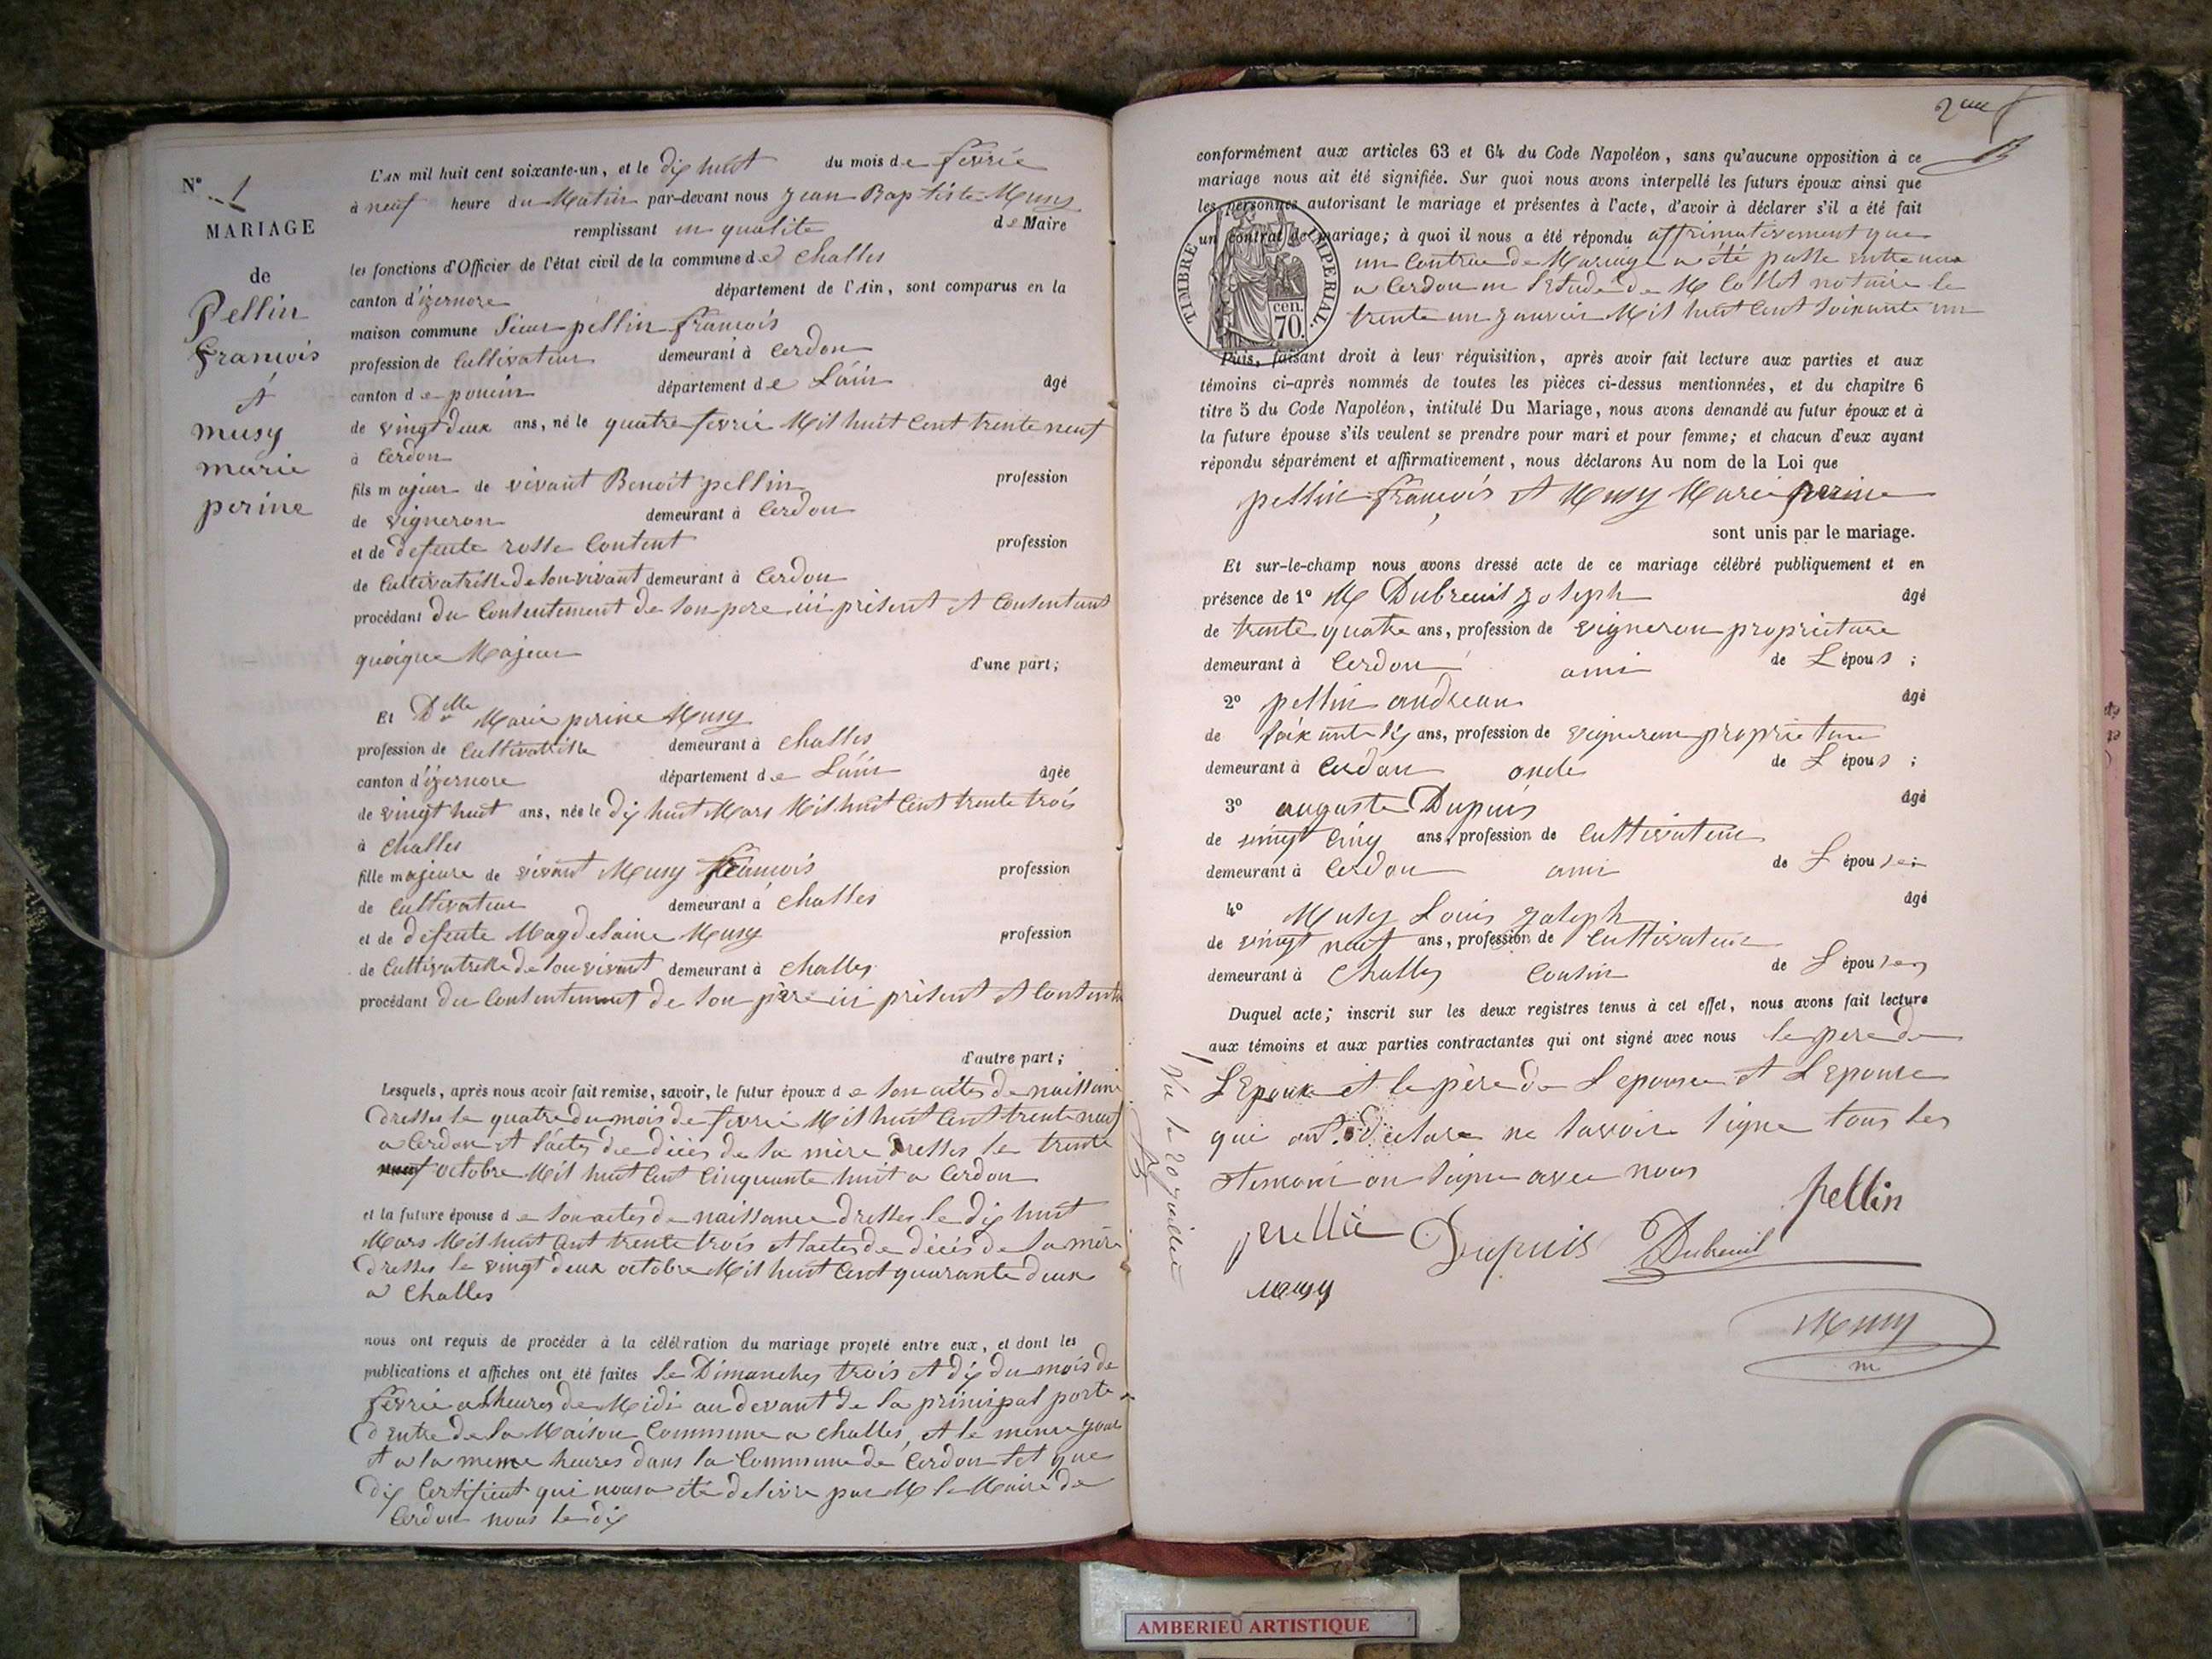 N° 1
MARIAGE
de
Pellin
francois
et
musy
marie
perine
L'AN mil huit cent soixante-un, et le dix huit du mois de fevrie
à neuf heure du Matin par-devant nous Jean Baptiste Musy
remplissant en qualite de Maire
les fonctions d'Officier de l'état civil de la commune de challes
canton d'izernore département de l'Ain, sont comparus en la
maison commune Sieur pellin francois
profession de Cultivateur demeurant à Cerdon
canton de poncin département de L'ain âgé
de vingt deux ans, né le quatre fevrie Mil huit Cent trente neuf
à Cerdon
fils majeur de vivant Benoit pellin profession
de vigneron demeurant à Cerdon
et de defente rosse Content profession
de Cultivatrisse de son vivant demeurant à Cerdon
procédant du Consentement de son pere ici présent et Consentant
quoique Majeur d'une part;
Et Dlle Marie perine Musy
profession de Cultivatrisse demeurant à challes
canton d'izernore département de L'ain âgée
de vingt huit ans, née le dix huit Mars Mil huit Cent trente trois
à challes
fille majeure de vivant Musy francois profession
de Cultivateur demeurant à challes
et de defente Magdelaine Musy profession
de Cultivatrisse de son vivant demeurant à challes
procédant du Consentement de son père ici présent et Consentant
d'autre part;
Lesquels, après nous avoir fait remise, savoir, le futur époux de son actes de naissance
dresses le quatre du mois de fevrie Mil huit Cent trente neuf
a Cerdon et l'actes de décès de sa mère dresses le trente
octobre Mil huit Cent Cinquante huit a Cerdon
et la future épouse de son actes de naissance dresses le dix huit
Mars Mil huit Cent trente trois et l'actes de décès de sa mère
dresses le vingt deux octobre Mil huit Cent quarante deux
a Challes
nous ont requis de procéder à la célébration du mariage projeté entre eux, et dont les
publications et affiches ont été faites Le Dimanches trois et dix du mois de
fevrie a heures de Midi au devant de la prinsipal porte
d'Entre de la Maison Commune a challes, et le meme jour
et a la meme heures dans la Commune de Cerdon et que
dix Certificat qui nous a été delivre par M le Maire de
Cerdon nous le dix
2me
conformément aux articles 63 et 64 du Code Napoléon, sans qu'aucune opposition à ce
mariage nous ait été signifiée. Sur quoi nous avons interpellé les futurs époux ainsi que
les personnes autorisant le mariage et présentes à l'acte, d'avoir à déclarer s'il a été fait
un contrat de mariage; à quoi il nous a été répondu affrimativement que
un Contrat de Mariage a été passe entre eux
a Cerdon en l'Etude de M Collot notaire le
trente un janvier Mil huit Cent soixante un
TIMBRE IMPÉRIAL.
cen.
70.
Puis, faisant droit à leur réquisition, après avoir fait lecture aux parties et aux
témoins ci-après nommés de toutes les pièces ci-dessus mentionnées, et du chapitre 6
titre 5 du Code Napoléon, intitulé Du Mariage, nous avons demandé au futur époux et à
la future épouse s'ils veulent se prendre pour mari et pour femme; et chacun d'eux ayant
répondu séparément et affirmativement, nous déclarons Au nom de la Loi que
pellin françois et Musy Marie perine
sont unis par le mariage.
Et sur-le-champ nous avons dressé acte de ce mariage célébré publiquement et en
présence de 1° M Dubreuil Joseph âgé
de trente quatre ans, profession de vigneron proprietare
demeurant à Cerdon ami de L'épous ;
2° pellin andrean âgé
de soixante dix ans, profession de vigneron proprietare
demeurant à Cerdon oncle de L'épous ;
3° auguste Dupuis âgé
de vingt Cinq ans, profession de Cultivateur
demeurant à Cerdon ami de L'épouse;
4° Musy Louis Joseph âgé
de vingt neuf ans, profession de Cultivateur
demeurant à Challes Cousin de L'épouse
Duquel acte; inscrit sur les deux registres tenus à cet effet, nous avons fait lecture
aux témoins et aux parties contractantes qui ont signé avec nous le pere de
L'Epoux et le père de L'epouse et L'Epouse
qui ont declare ne savoir signe tous les
temoin on signe avec nous
pellin
Dupuis Dubreuil
Musy
Musy
m
Vu le 20 juillet
AMBERIEU ARTISTIQUE